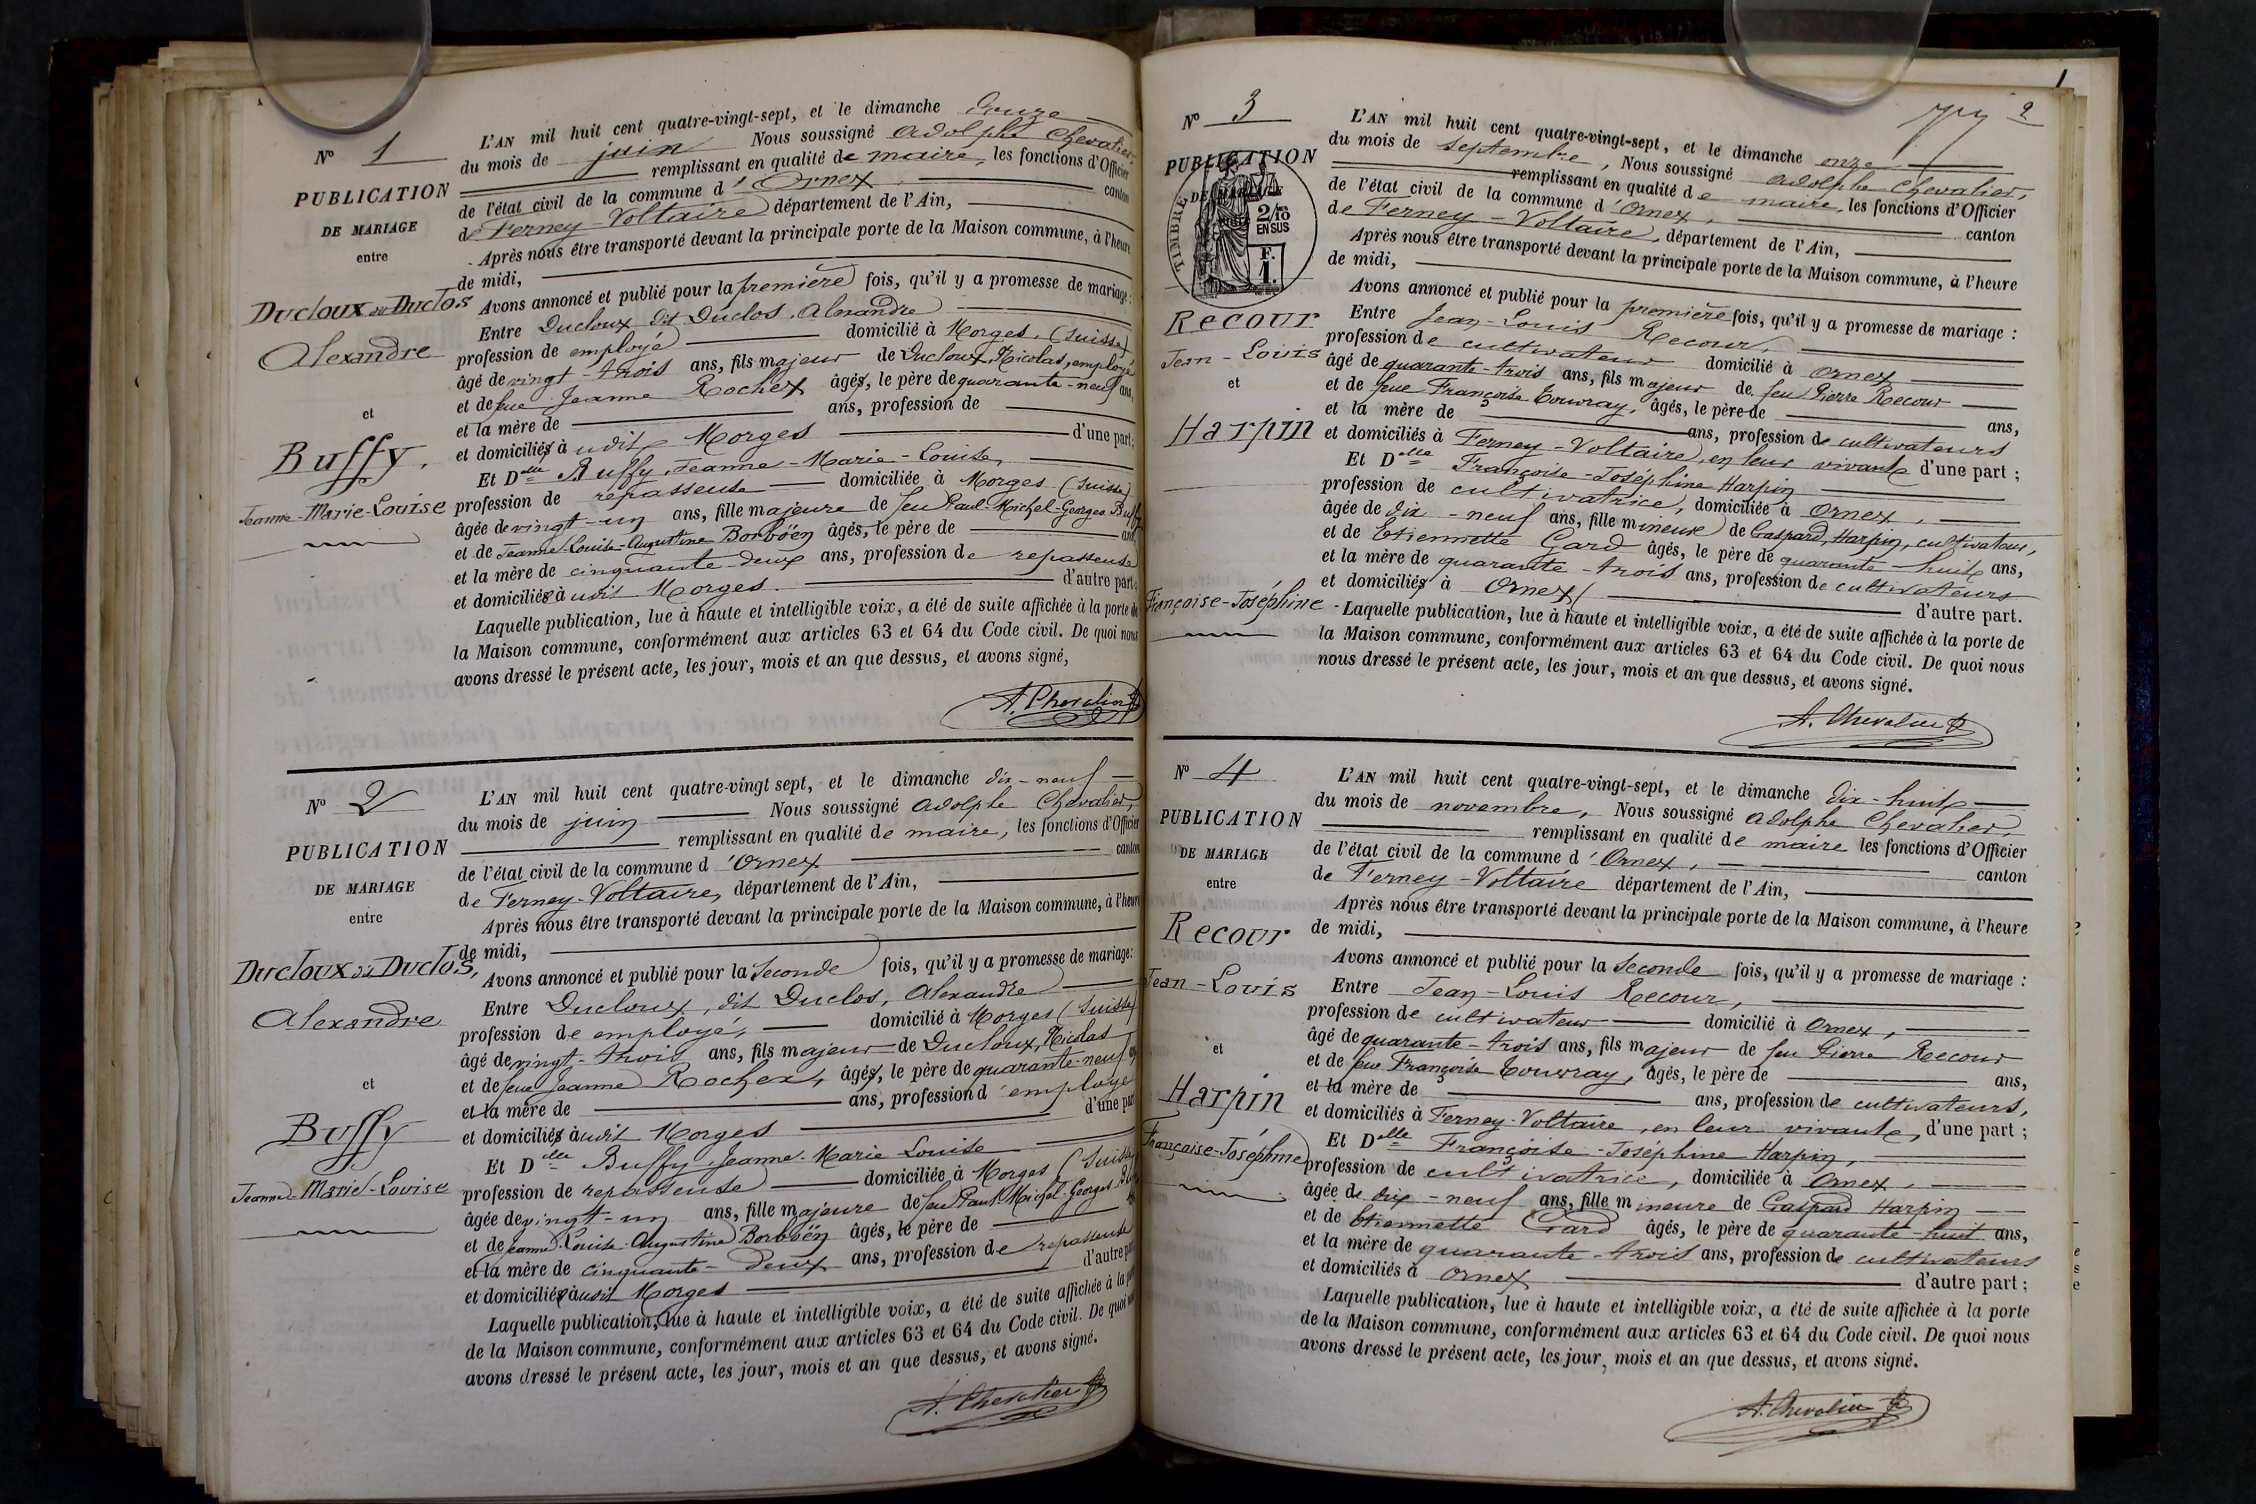 N° 1
PUBLICATION
DE MARIAGE
entre
Ducloux dit Duclos
Alexandre
et
Buffy,
Jeanne-Marie-Louise
L'AN mil huit cent quatre-vingt-sept, et le dimanche douze
du mois de juin Nous soussigné Adolphe Chevalier,
remplissant en qualité de maire, les fonctions d'Officier
de l'état civil de la commune d'Ornex, canton
de Ferney-Voltaire département de l'Ain,
Après nous être transporté devant la principale porte de la Maison commune, à l'heure
de midi,
Avons annoncé et publié pour la première fois, qu'il y a promesse de mariage :
Entre Ducloux dit Duclos, Alexandre
profession de employé domicilié à Morges, (Suisse)
âgé de vingt-trois ans, fils majeur de Ducloux, Nicolas, employé
et de feue Jeanne Rochex âgés, le père de quarante-neuf ans,
et la mère de ans, profession de
et domiciliés à udit Morges d'une part;
Et Delle Buffy, Jeanne-Marie-Louise,
profession de repasseuse domiciliée à Morges (Suisse)
âgée de vingt-un ans, fille majeure de feu Paul-Michel-Georges Buffy
et de Jeanne-Louise-Augustine Borböen âgés, le père de ans
et la mère de cinquante-deux ans, profession de repasseuse
et domiciliés à udit Morges. d'autre part.
Laquelle publication, lue à haute et intelligible voix, a été de suite affichée à la porte de
la Maison commune, conformément aux articles 63 et 64 du Code civil. De quoi nous
avons dressé le présent acte, les jour, mois et an que dessus, et avons signé,
A. Chevalier
N° 2
PUBLICATION
DE MARIAGE
entre
Ducloux dit Duclos,
Alexandre
et
Buffy
Jeanne-Marie-Louise
L'AN mil huit cent quatre-vingt sept, et le dimanche dix-neuf
du mois de juin Nous soussigné Adolphe Chevalier,
remplissant en qualité de maire, les fonctions d'Officier
de l'état civil de la commune d'Ornex canton
de Ferney-Voltaire, département de l'Ain,
Après nous être transporté devant la principale porte de la Maison commune, à l'heure
de midi,
Avons annoncé et publié pour la seconde fois, qu'il y a promesse de mariage:
Entre Ducloux, dit Duclos, Alexandre
profession de employé, domicilié à Morges (Suisse)
âgé de vingt-trois ans, fils majeur de Ducloux, Nicolas
et de feue Jeanne Rochex, âgés, le père de quarante-neuf
et la mère de ans, profession d'employé
et domiciliés à udit Morges d'une part
Et Delle Buffy, Jeanne-Marie-Louise
profession de repasseuse domiciliée à Morges (Suisse
âgée de vingt-un ans, fille majeure de feu Paul-Michel-Georges
et de Jeanne-Louise-Augustine Borböen âgés, le père de
et la mère de cinquante-deux ans, profession de repasseuse
et domiciliés à udit Morges d'autre part
Laquelle publication, lue à haute et intelligible voix, a été de suite affichée à la
de la Maison commune, conformément aux articles 63 et 64 du Code civil. De quoi
avons dressé le présent acte, les jour, mois et an que dessus, et avons signé.
A. Chevalier
1
2
N° 3
PUBLICATION
DE MARIAGE
TIMBRE
2/10 EN SUS
F. 1.
Recour
Jean-Louis
et
Harpin
Françoise-Joséphine
L'AN mil huit cent quatre-vingt-sept, et le dimanche onze
du mois de septembre, Nous soussigné Adolphe Chevalier,
remplissant en qualité de maire, les fonctions d'Officier
de l'état civil de la commune d'Ornex, canton
de Ferney-Voltaire, département de l'Ain,
Après nous être transporté devant la principale porte de la Maison commune, à l'heure
de midi,
Avons annoncé et publié pour la première fois, qu'il y a promesse de mariage :
Entre Jean-Louis Recour,
profession de cultivateur domicilié à Ornex
âgé de quarante-trois ans, fils majeur de feu Pierre Recour
et de feue Françoise Couvray, âgés, le père de ans,
et la mère de ans, profession de cultivateurs
et domiciliés à Ferney-Voltaire, en leur vivant d'une part ;
Et Delle Françoise-Joséphine Harpin
profession de cultivatrice, domiciliée à Ornex,
âgée de dix-neuf ans, fille mineure de Gaspard, Harpin, cultivateur,
et de Etiennette Gard âgés, le père de quarante-huit ans,
et la mère de quarante-trois ans, profession de cultivateurs
et domiciliés à Ornex d'autre part.
Laquelle publication, lue à haute et intelligible voix, a été de suite affichée à la porte de
la Maison commune, conformément aux articles 63 et 64 du Code civil. De quoi nous
nous dressé le présent acte, les jour, mois et an que dessus, et avons signé.
A. Chevalier
N° 4
PUBLICATION
DE MARIAGE
entre
Recour
Jean-Louis
et
Harpin
Françoise-Joséphine
L'AN mil huit cent quatre-vingt-sept, et le dimanche dix-huit
du mois de novembre, Nous soussigné Adolphe Chevalier,
remplissant en qualité de maire les fonctions d'Officier
de l'état civil de la commune d'Ornex, canton
de Ferney-Voltaire département de l'Ain,
Après nous être transporté devant la principale porte de la Maison commune, à l'heure
de midi,
Avons annoncé et publié pour la seconde fois, qu'il y a promesse de mariage :
Entre Jean-Louis Recour,
profession de cultivateur domicilié à Ornex,
âgé de quarante-trois ans, fils majeur de feu Pierre Recour
et de feue Françoise Couvray, âgés, le père de ans,
et la mère de ans, profession de cultivateurs,
et domiciliés à Ferney-Voltaire, en leur vivant, d'une part ;
Et Delle Françoise-Joséphine Harpin,
profession de cultivatrice, domiciliée à Ornex,
âgée de dix-neuf ans, fille mineure de Gaspard Harpin
et de Etiennette Gard âgés, le père de quarante-huit ans,
et la mère de quarante-trois ans, profession de cultivateurs
et domiciliés à Ornex d'autre part ;
Laquelle publication, lue à haute et intelligible voix, a été de suite affichée à la porte
de la Maison commune, conformément aux articles 63 et 64 du Code civil. De quoi nous
avons dressé le présent acte, les jour, mois et an que dessus, et avons signé.
A. Chevalier